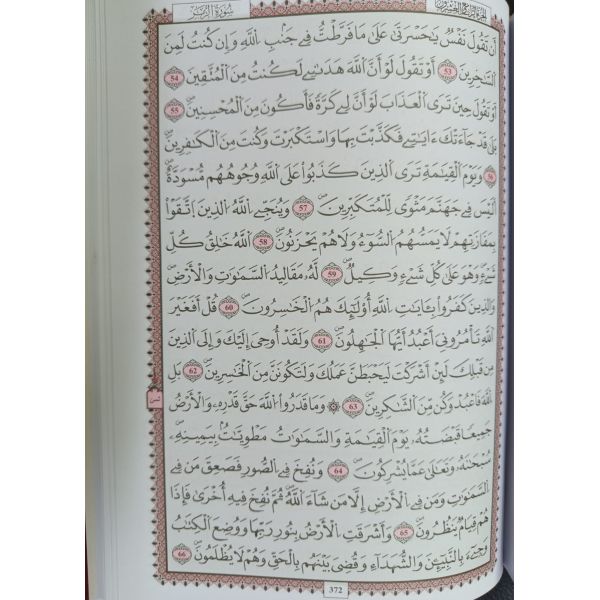 الجزء الرابع والعشرون
سُورَةُ الزُّمَرِ
أَن تَقُولَ نَفْسٌ يَٰحَسْرَتَىٰ عَلَىٰ مَا فَرَّطتُ فِے جَنۢبِ اِ۬للَّهِ وَإِن كُنتُ لَمِنَ
اَ۬لسَّٰخِرِينَ 53 أَوْ تَقُولَ لَوْ أَنَّ اَ۬للَّهَ هَدَىٰنِے لَكُنتُ مِنَ اَ۬لْمُتَّقِينَ 54
أَوْ تَقُولَ حِينَ تَرَى اَ۬لْعَذَابَ لَوْ أَنَّ لِے كَرَّةً فَأَكُونَ مِنَ اَ۬لْمُحْسِنِينَ 55
بَلَىٰ قَدْ جَآءَتْكَ ءَايَٰتِے فَكَذَّبْتَ بِهَا وَاسْتَكْبَرْتَ وَكُنتَ مِنَ اَ۬لْكَٰفِرِينَ
56 وَيَوْمَ اَ۬لْقِيَٰمَةِ تَرَى اَ۬لذِينَ كَذَبُواْ عَلَى اَ۬للَّهِ وُجُوهُهُم مُّسْوَدَّةٌ
اَلَيْسَ فِے جَهَنَّمَ مَثْوىٗ لِّلْمُتَكَبِّرِينَ 57 وَيُنَجِّے اِ۬للَّهُ اُ۬لذِينَ اَ۪تَّقَوْاْ
بِمَفَازَتِهِمْ لَا يَمَسُّهُمُ اُ۬لسُّوٓءُ وَلَا هُمْ يَحْزَنُونَ 58 اَ۬للَّهُ خَٰلِقُ كُلِّ
شَےْءٖ وَهُوَ عَلَىٰ كُلِّ شَےْءٖ وَكِيلٌ 59 لَّهُۥ مَقَالِيدُ اُ۬لسَّمَٰوَٰتِ وَالْأَرْضِ
وَالذِينَ كَفَرُواْ بِـَٔايَٰتِ اِ۬للَّهِ أُوْلَٰٓئِكَ هُمُ اُ۬لْخَٰسِرُونَ 60 قُلْ أَفَغَيْرَ
اَ۬للَّهِ تَأْمُرُونِيَ أَعْبُدُ أَيُّهَا اَ۬لْجَٰهِلُونَ 61 وَلَقَدْ أُوحِيَ إِلَيْكَ وَإِلَى اَ۬لذِينَ
مِن قَبْلِكَ لَئِنْ أَشْرَكْتَ لَيَحْبَطَنَّ عَمَلُكَ وَلَتَكُونَنَّ مِنَ اَ۬لْخَٰسِرِينَ 62 بَلِ
اِ۬للَّهَ فَاعْبُدْ وَكُن مِّنَ اَ۬لشَّٰكِرِينَ 63 ۞ وَمَا قَدَرُواْ اُ۬للَّهَ حَقَّ قَدْرِهِۦ وَالْأَرْضُ
جَمِيعاٗ قَبْضَتُهُۥ يَوْمَ اَ۬لْقِيَٰمَةِ وَالسَّمَٰوَٰتُ مَطْوِيَّٰتُۢ بِيَمِينِهِۦ
سُبْحَٰنَهُۥ وَتَعَٰلَىٰ عَمَّا يُشْرِكُونَ 64 وَنُفِخَ فِے اِ۬لصُّورِ فَصَعِقَ مَن فِے
اِ۬لسَّمَٰوَٰتِ وَمَن فِے اِ۬لْأَرْضِ إِلَّا مَن شَآءَ اَ۬للَّهُ ثُمَّ نُفِخَ فِيهِ أُخْرَىٰ فَإِذَا
هُمْ قِيَامٌ يَنظُرُونَ 65 وَأَشْرَقَتِ اِ۬لْأَرْضُ بِنُورِ رَبِّهَا وَوُضِعَ اَ۬لْكِتَٰبُ
وَجِےٓءَ بِالنَّبِيٓـِٕۧنَ وَالشُّهَدَآءِ وَقُضِيَ بَيْنَهُم بِالْحَقِّ وَهُمْ لَا يُظْلَمُونَ 66
372